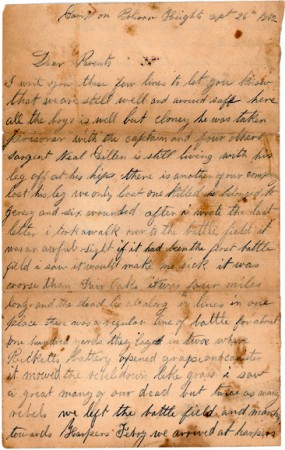 Camp on Bolivar Heights Sept 26th 1862
Dear Parents
I writ you these few lines to let you know
that we are still well and arrived safe here
all the boys is well but he was taken
prisoner with the captain and four others
Sargent Neal Gillen is still living with his
leg off at his hips there is another of our comp
lost his leg we only lost one killed he belonged to
jersy and six wounded after i wrote the last
letter i took a walk over to the battle field it
was an awful sight if it had been the first battle
field i saw it would make me sick it was
worse than Fair Oaks it was four miles
long and the dead lie in lines in one
place there was a regular line of battle for about
one hundred yards they layed in two where
Ricketts Battery opened grape and canister
it mowed the rebels down like grass i saw
a great many of our dead but twice as many
rebels we left the battle field and march
towards Harpers Ferry we arrived at harpers